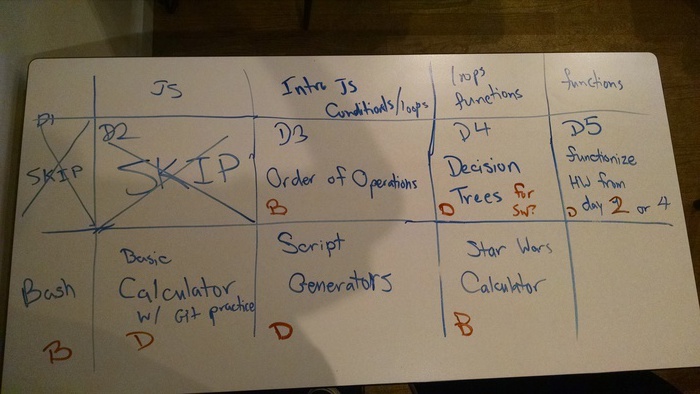 JS
Intro JS
Conditionals/loops
loops
functions
functions
D1
SKIP
D2
SKIP
D3
Order of Operations
B
D4
Decision
Trees for
SW?
D
D5
functionize
HW from
D day 2 or 4
Bash
B
Basic
Calculator
w/ Git practice
D
Script
Generators
D
Star Wars
Calculator
B